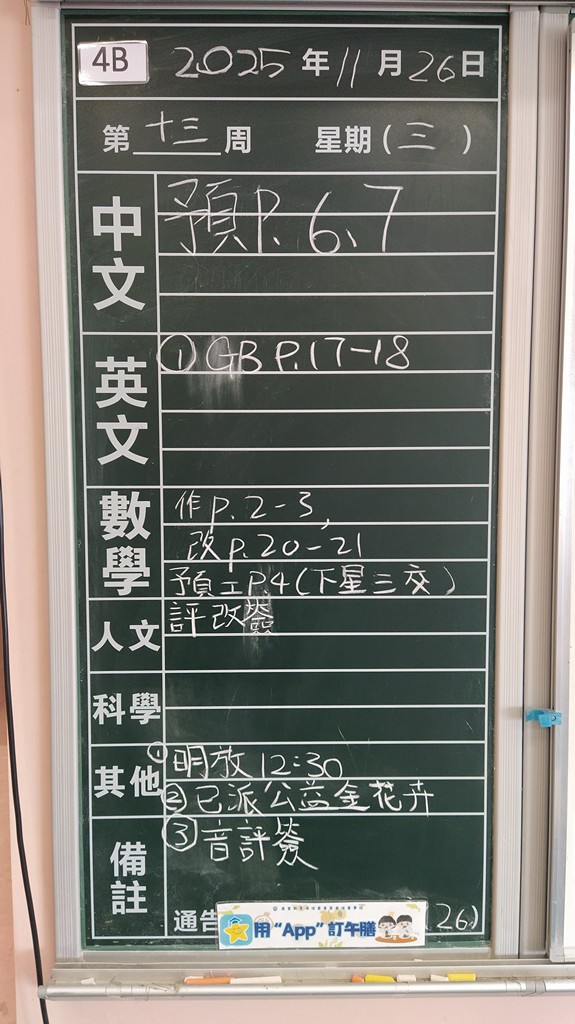 4B 2025年11月26日
第十三周 星期(三)
中文 預P.6、7
英文 ①GB P.17-18
數學 作P.2-3,
改P.20-21
預工P.4(下星三交)
人文 評改簽
科學
其他 ①明放12:30
②已派公益金花卉
備註 ③音評簽
通告 26)
用“App”訂午膳